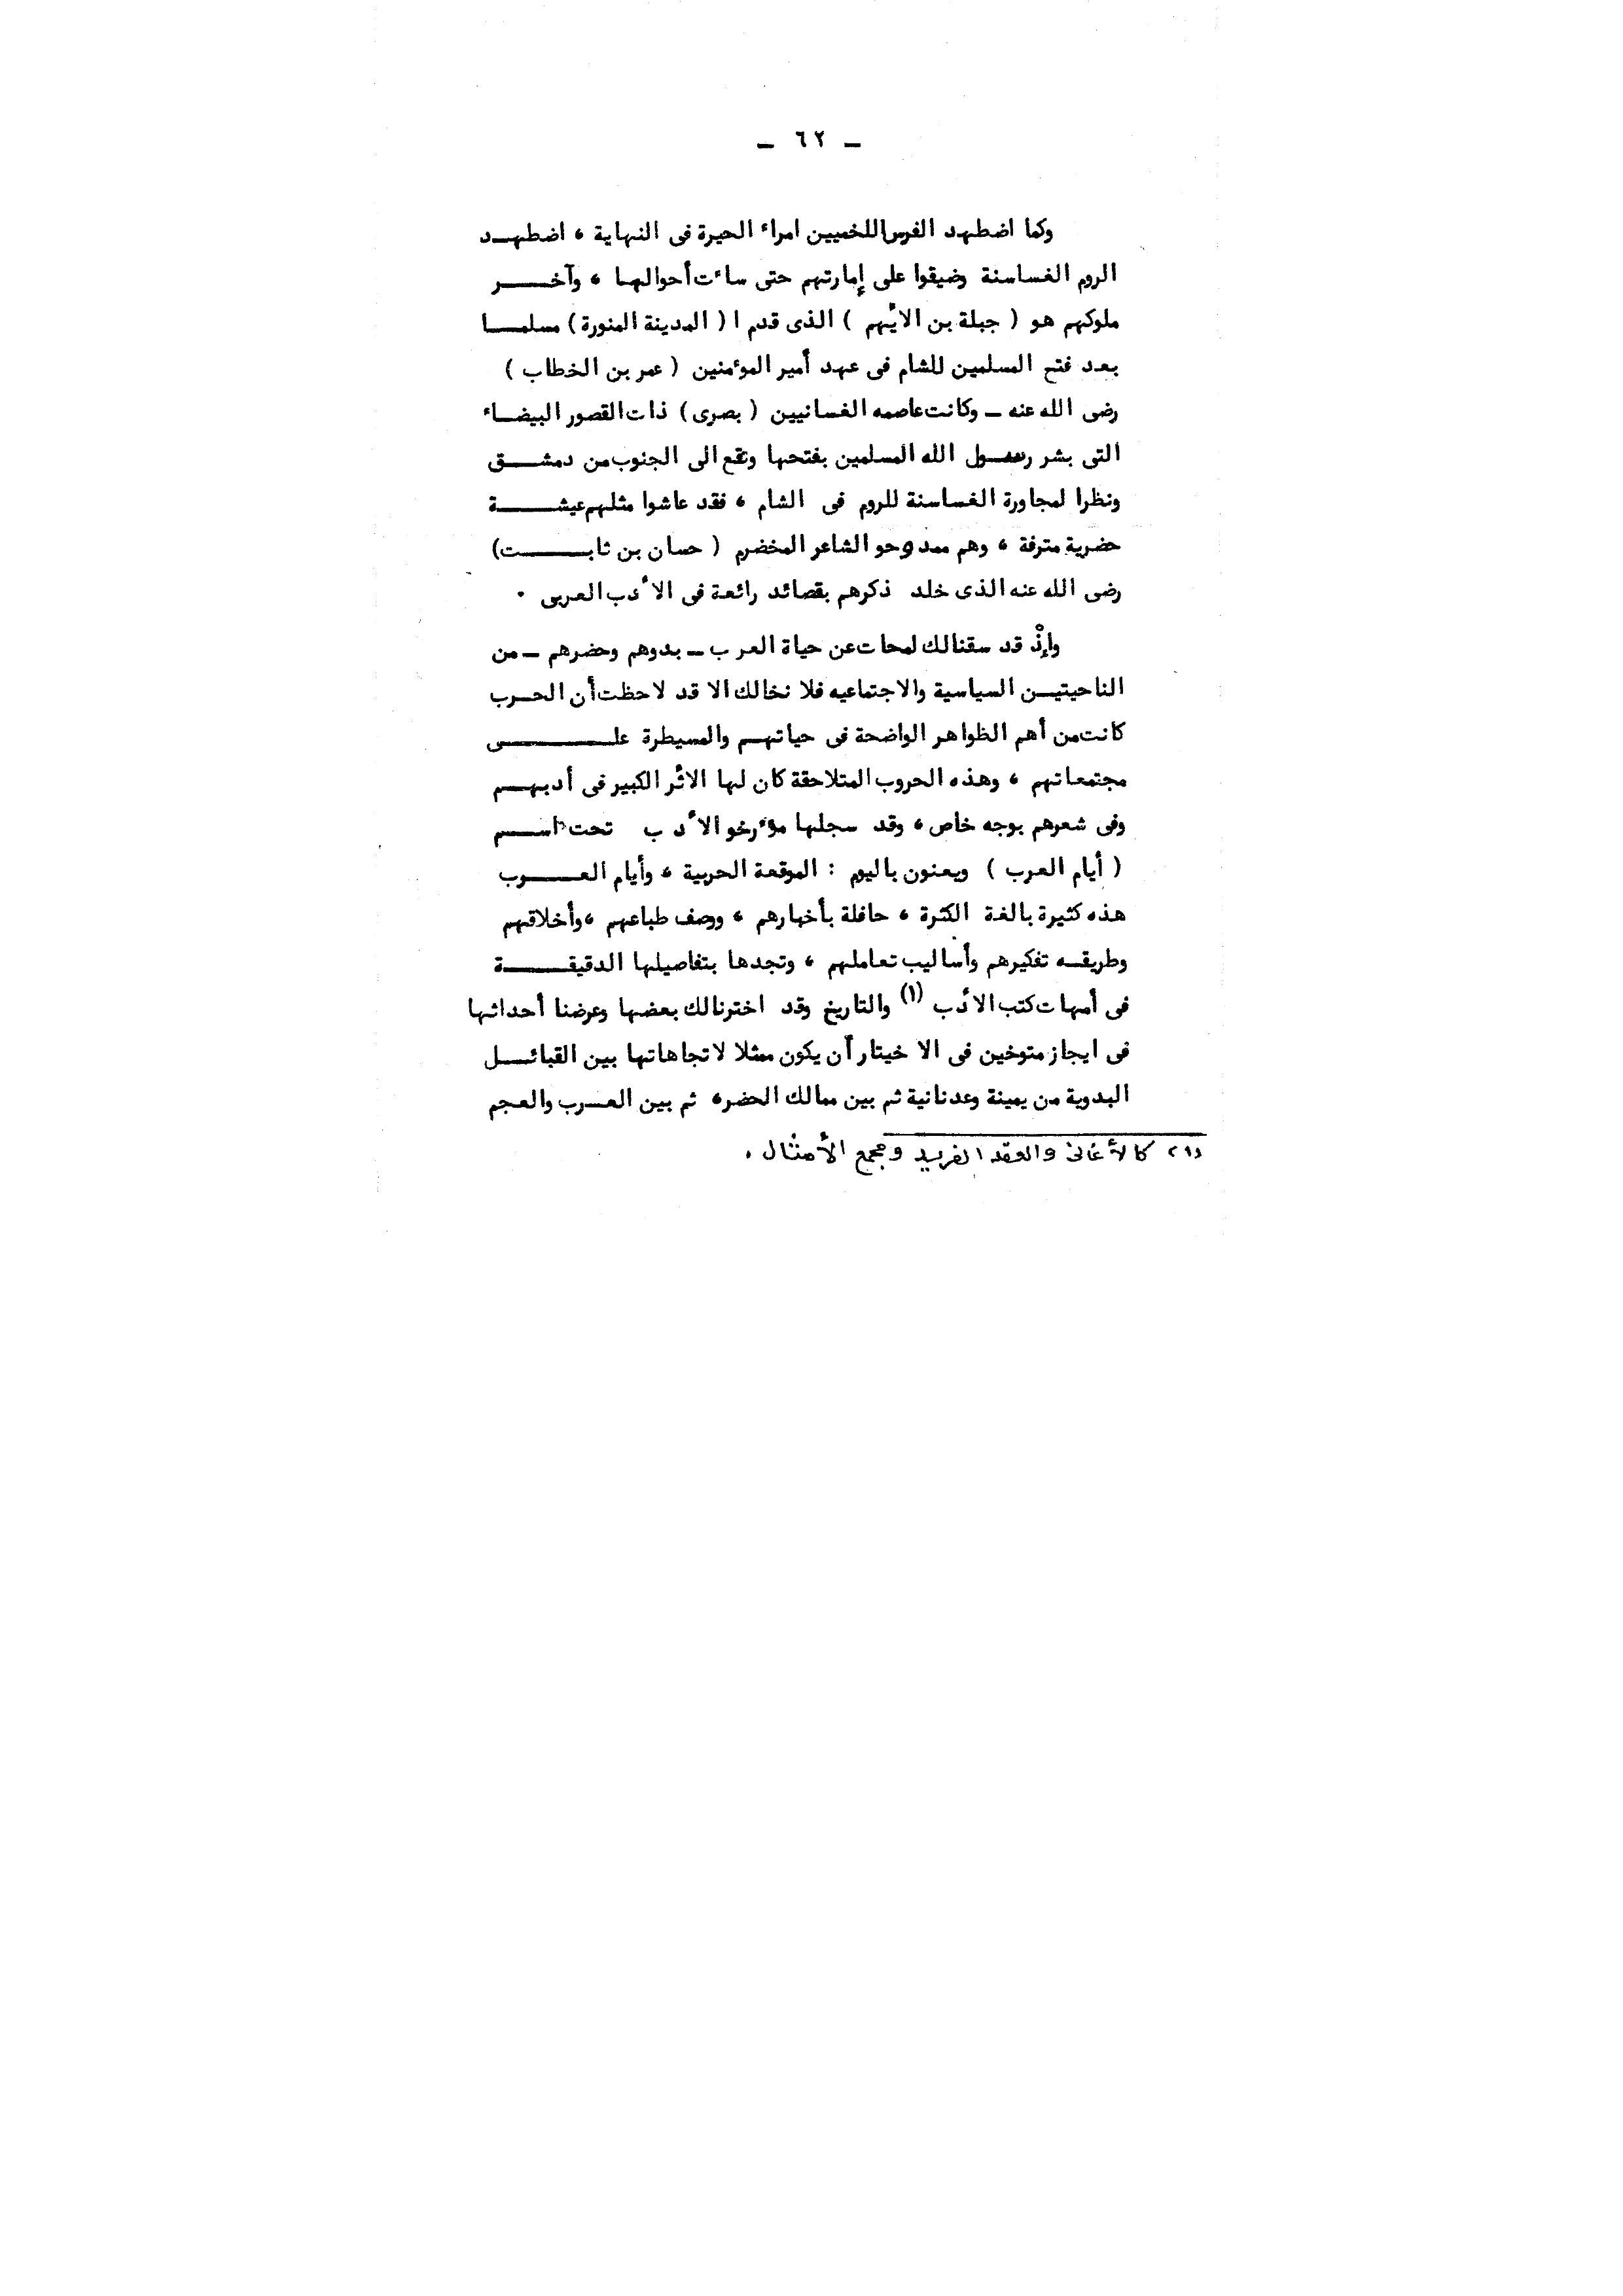 ـ ٦٢ ـ
وكما اضطهد الفرس اللخميين امراء الحيرة فى النهاية ، اضطهد
الروم الغساسنة وضيقوا على إمارتهم حتى ساءت أحوالها ، وآخر
ملوكهم هو ( جبلة بن الأيهم ) الذى قدم ا ( المدينة المنورة ) مسلما
بعد فتح المسلمين للشام فى عهد أمير المؤمنين ( عمر بن الخطاب )
رضى الله عنه ـ وكانت عاصمه الغسانيين ( بصرى ) ذات القصور البيضاء
التى بشر رسول الله المسلمين بفتحها وتقع الى الجنوب من دمشق
ونظرا لمجاورة الغساسنة للروم فى الشام ، فقد عاشوا مثلهم عيشة
حضرية مترفة ، وهم ممدوحو الشاعر المخضرم ( حسان بن ثابت )
رضى الله عنه الذى خلد ذكرهم بقصائد رائعة فى الأدب العربى .
وإذْ قد سقنالك لمحات عن حياة العرب ـ بدوهم وحضرهم ـ من
الناحيتين السياسية والاجتماعيه فلا نخالك الا قد لاحظت أن الحرب
كانت من أهم الظواهر الواضحة فى حياتهم والمسيطرة على
مجتمعاتهم ، وهذه الحروب المتلاحقة كان لها الأثر الكبير فى أدبهم
وفى شعرهم بوجه خاص ، وقد سجلها مؤرخو الأدب تحت اسم
( أيام العرب ) ويعنون باليوم : الموقعة الحربية ، وأيام العرب
هذه كثيرة بالغة الكثرة ، حافلة بأخبارهم ، ووصف طباعهم ، وأخلاقهم
وطريقه تفكيرهم وأساليب تعاملهم ، وتجدها بتفاصيلها الدقيقة
فى أمهات كتب الأدب (١) والتاريخ وقد اخترنالك بعضها وعرضنا أحداثها
فى ايجاز متوخين فى الا خيتار أن يكون ممثلا لاتجاهاتها بين القبائل
البدوية من يمينة وعدنانية ثم بين ممالك الحضر، ثم بين العرب والعجم
(١) كالأغانى والعقد الفريد ومجمع الأمثال .